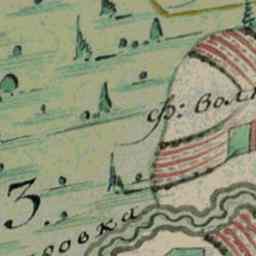 ф: вол
3.
ровка